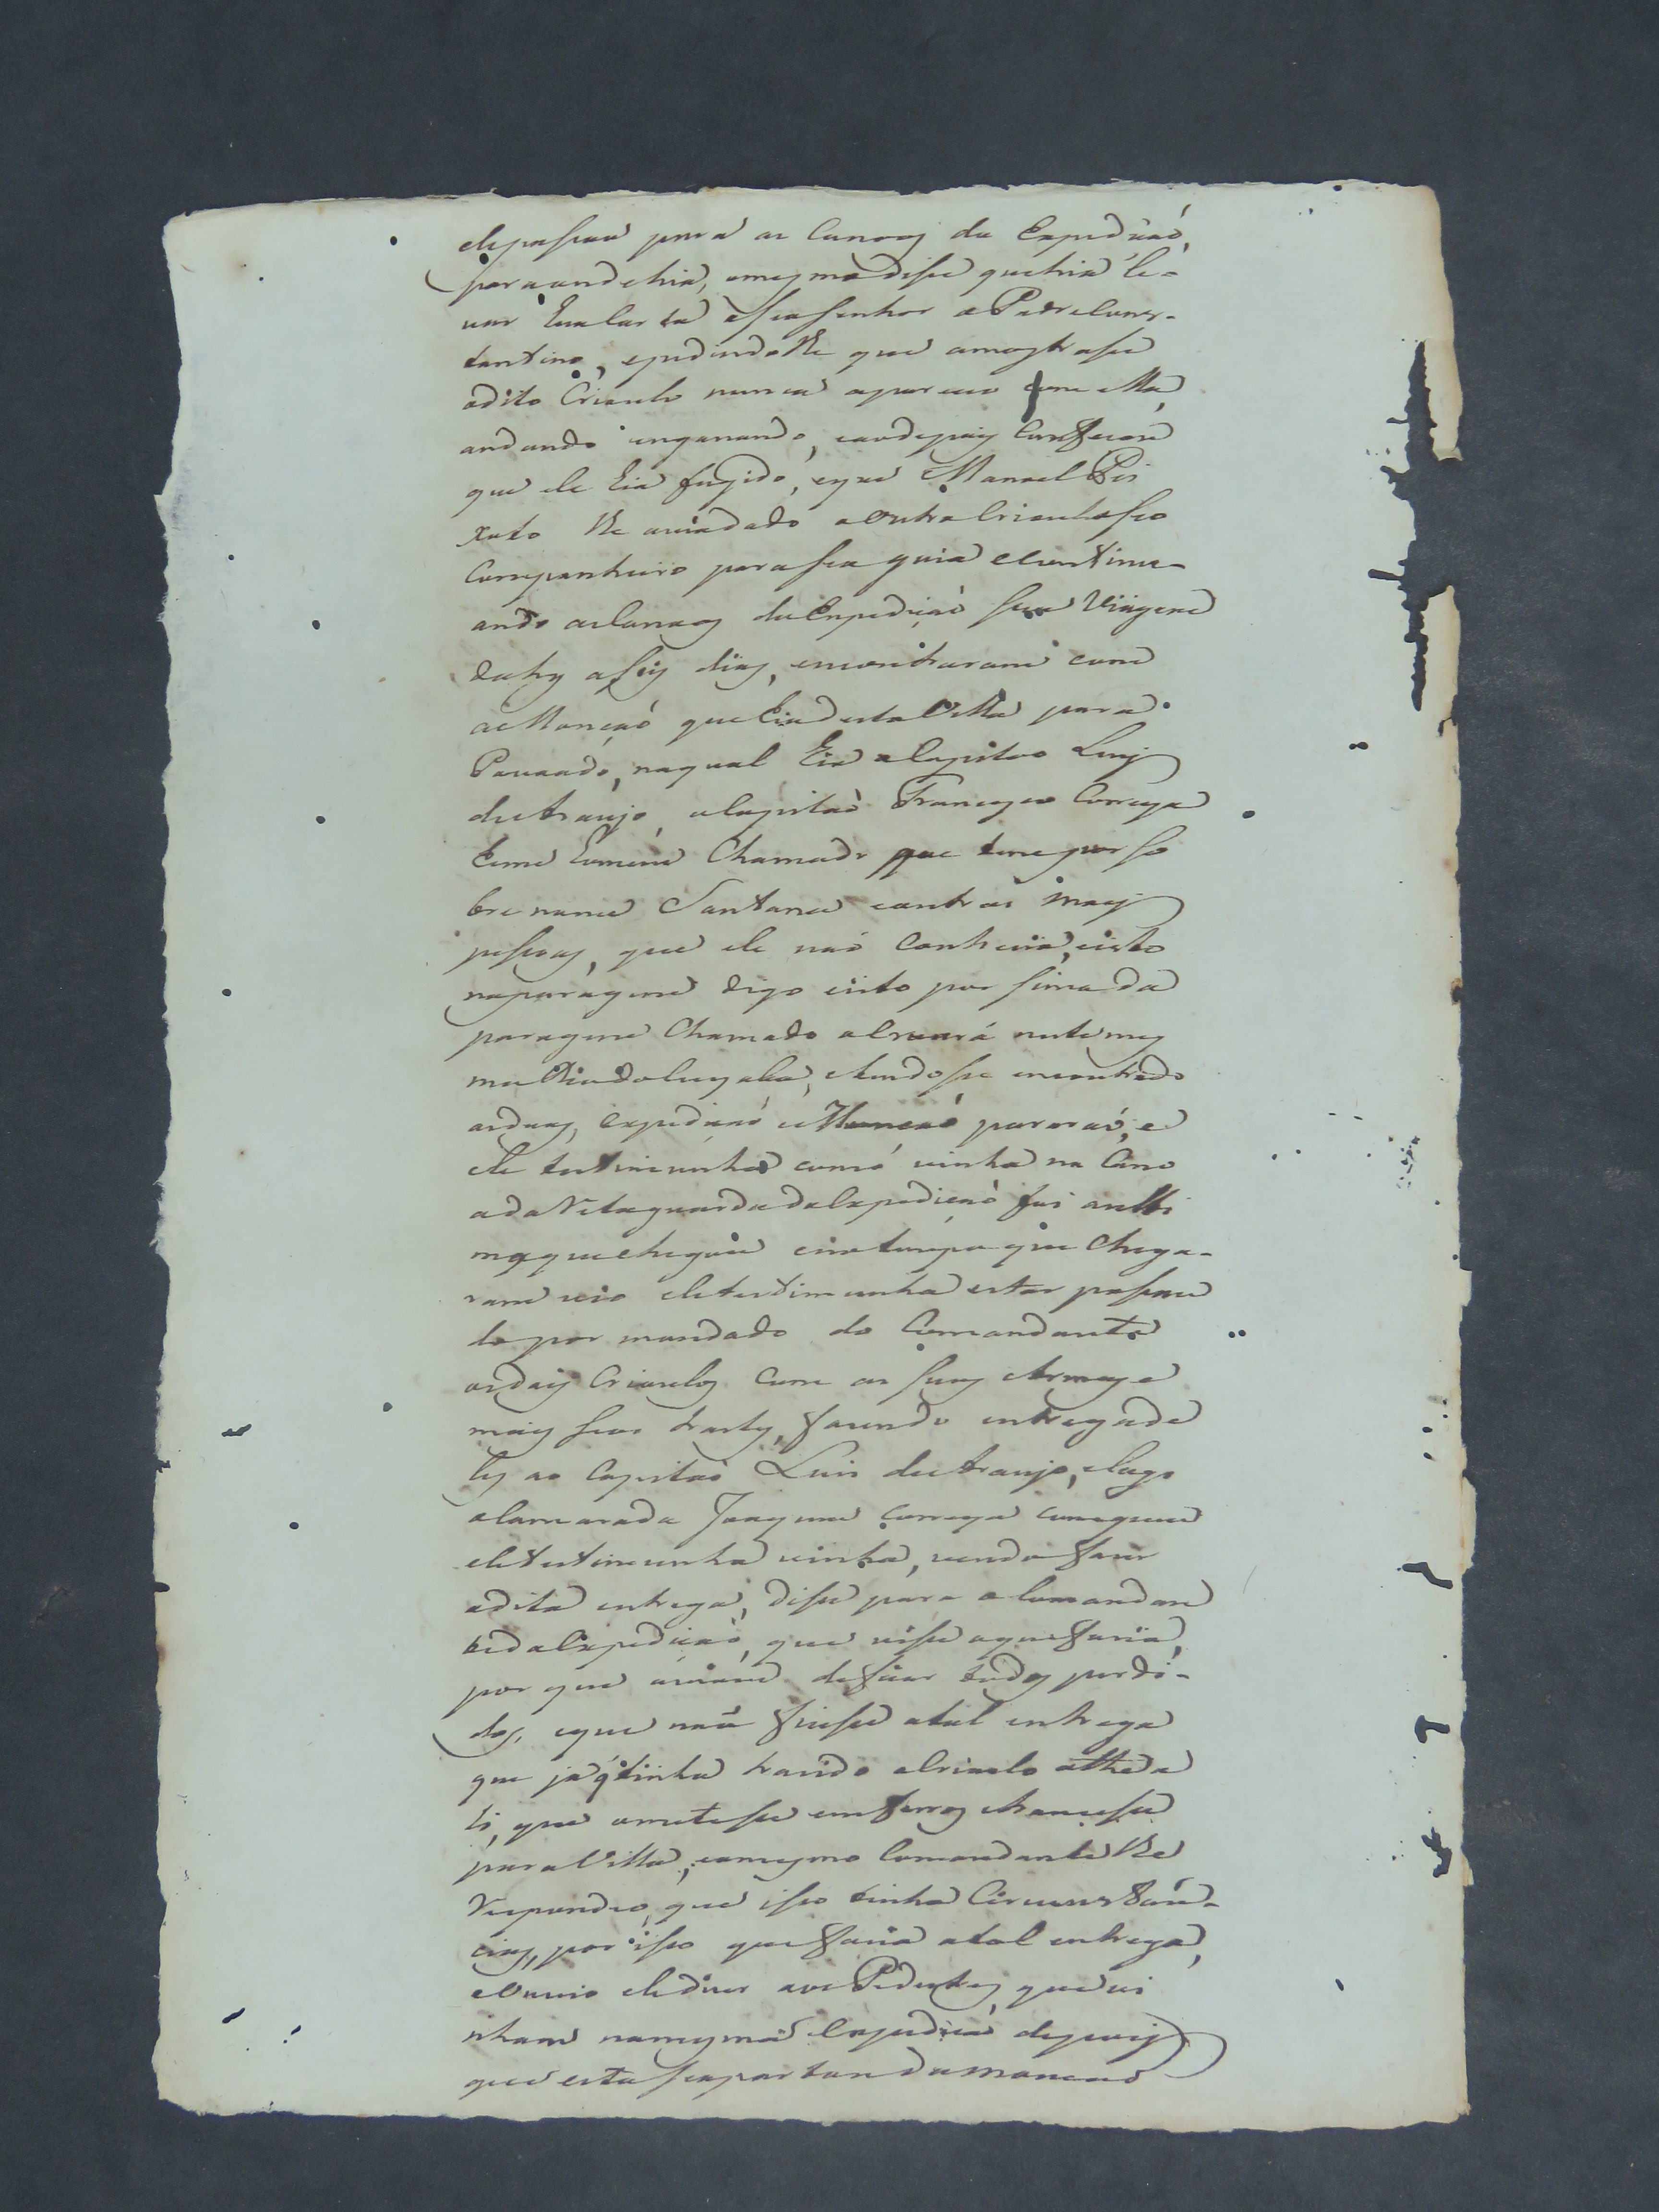 elepasava para as Canoas da Expedicaó,
para onde hia, omesmo disse que hia le-
var huã Carta aseu senhor o Padre Cons-
tantino, epedindolhe que amostrase
odito Crioulo nunca apareceo com ella,
andando enganando, eaodepois Confeçou
que ele hia fugido, eque Manoel Pei
xoto lhe avia dado aoutro Crioulo seo
Companheiro para sua guia econtinu-
ando as Canoas da Expediçaó sua Viagem
dahy aseis dias, encontraram com
a Monçaó que hia desta Villa para
Povoado, naqual hia o Capitao Luis
de Araujo, o Capitaó Francisco Correya
hum homem Chamado que tem por so
bre nome Santana eoutras mais
pesoas, que ele naó Conhecia, eisto
naparagem digo eisto por sima da
paragem Chamado
mo Rio do Cuyabá, etendose encontrado
asduas, expediçaó eMonçaó pararaó, e
ele testimunha como vinha na Cano
a da Retaguarda da Expediçaó foi oulti
mo que chegou eno tempo que Chega-
ram veio ele testimunha estar pasan
do por mandado do Comandante
osdois Crioulos com as suas Armas e
mais seos trastes, fazendo entrega de
les ao Capitaó Luis de Araujo, elogo
o Camarada Joaquim Correya comquem
ele testimunha vinha, vendo fazer
adita entrega, dise para o Comandan
te da Expediçaó, que vise oque fazia,
por que aviam deficar todos perdi-
dos, eque naó fizese atal entrega
que já q tinha trazido o Crioulo athe a
li, que ometese em ferros etrouxese
para Villa, eomesmo Comandante lhe
Respondeo, que isso tinha Circunstân-
cias, por iso que fazia atal entrega,
eouvio ele dizer aos Pedestes, que vi
nham namesma Expediçaó depois
que esta seapartou da monçaó